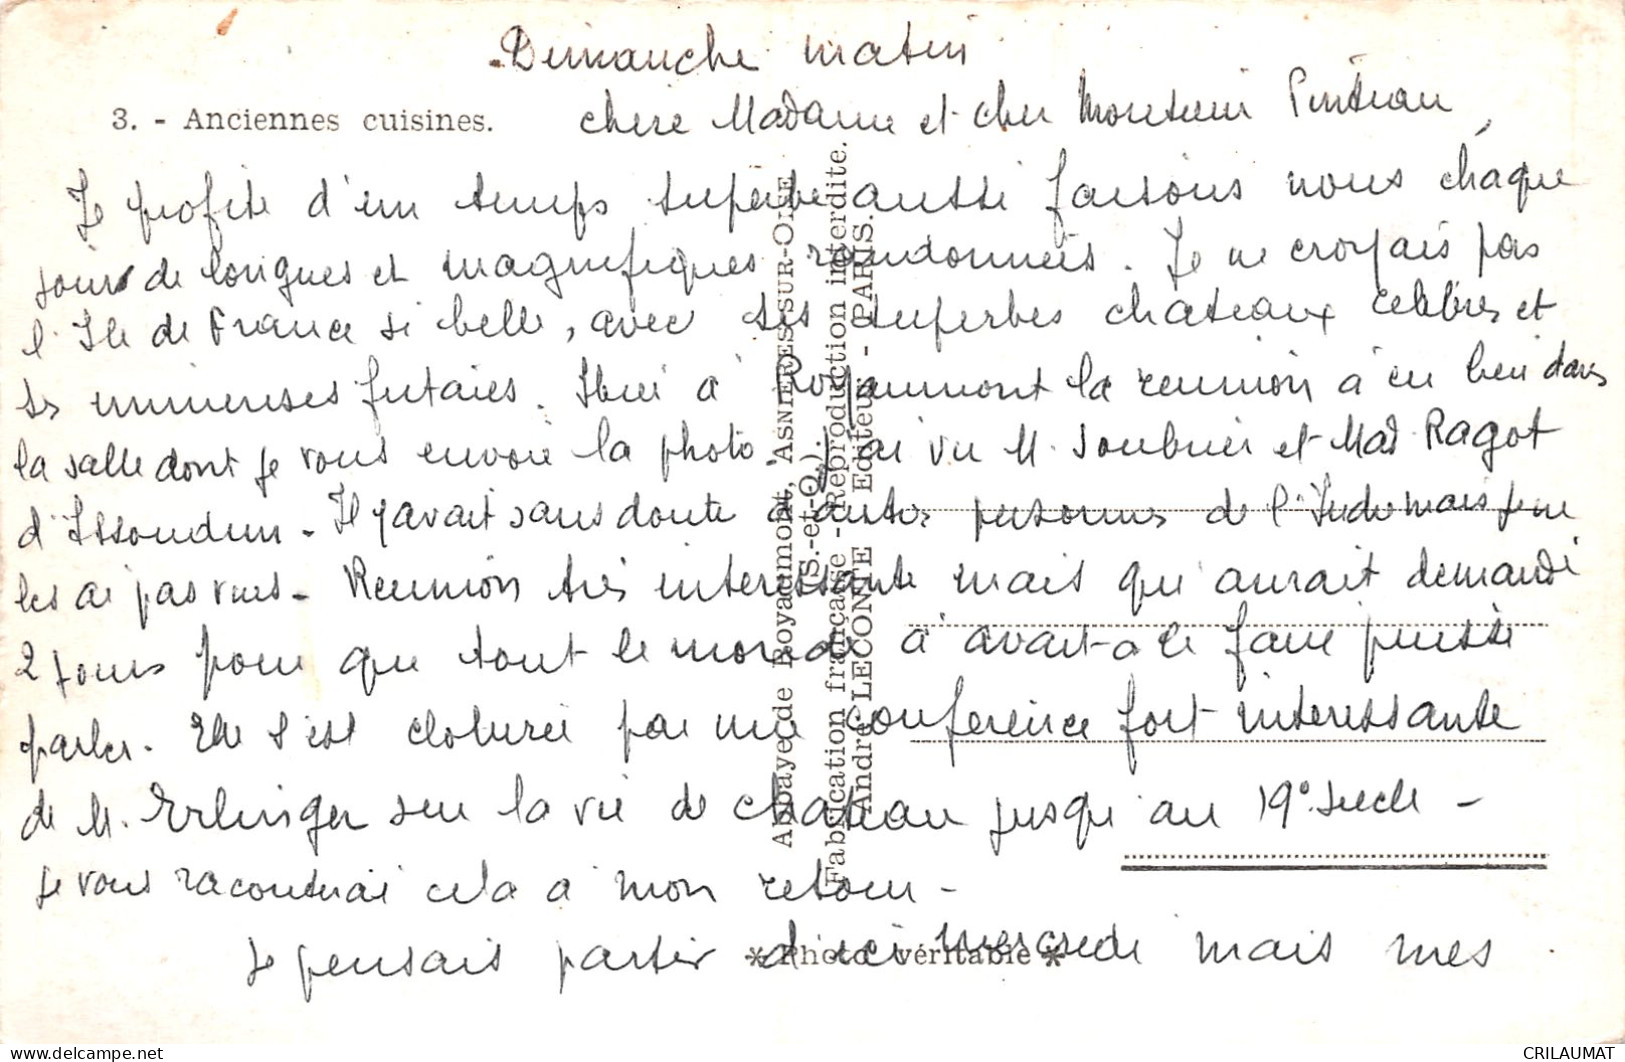 Dimanche matin
3. - Anciennes cuisines.
chere Madame et cher Monsieur Pinteau,
Je profite d'un temps superbe aussi faisons nous chaque
jours de longues et magnifiques randonnées. Je ne croyais pas
l'Ile de France si belle, avec ses superbes chateaux celebres et
ses immenses futaies. Ihui à Royaumont la reunion à eu lieu dans
la salle dont je vous envoie la photo. J'ai vu M. Soubrier et Mad Ragot
d'Issoudun - Il y avait sans doute d'autres personnes de l'Indre mais je ne
les ai pas vues - Reunion très interessante mais qui aurait demandé
2 jours pour que tout le monde à avait a le faire puisse
parler. Elle s'est cloturée par une conference fort interessante
de M. Erlinger sur la vie de chateau jusqu'au 19° siecle -
Je vous raconterai cela a mon retour -
Je pensais partir d'ici mercredi mais mes
Abbaye de Royaumont, ASNIERES-SUR-OISE
(S.-et-O.).
Fabrication française - Reproduction interdite.
André LECONTE Editeur - PARIS.
* Photo véritable *
www.delcampe.net
CRILAUMAT